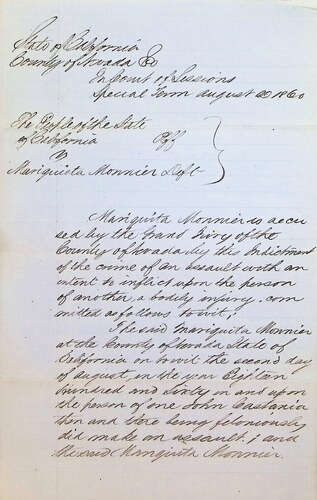 State of California
County of Nevada
In Court of Sessions
Special Term August 1860
The People of the State
of California Plff
vs
Mariquita Monnier Deft
Mariquita Monnier is accu
sed by the Grand Jury of the
County of Nevada by this Indictment
of the crime of an assault with an
intent to inflict upon the person
of another a bodily injury, com
mitted as follows to wit;
The said Mariquita Monnier
at the County of Nevada State of
California on to wit the second day
of August, in the year Eighteen
hundred and Sixty in and upon
the person of one John
then and there being feloniously
did make an assault; and
the said Mariquita Monnier.